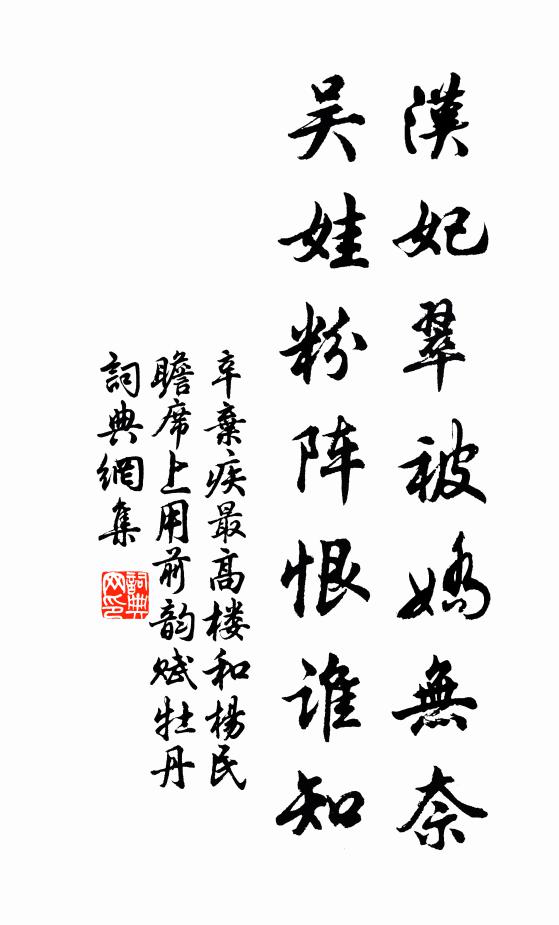 漢妃翠被嬌無奈
吴娃粉阵恨谁知
辛棄疾最高楼和楊民
瞻席上用前韵赋牡丹
詞典網集
詞典网印